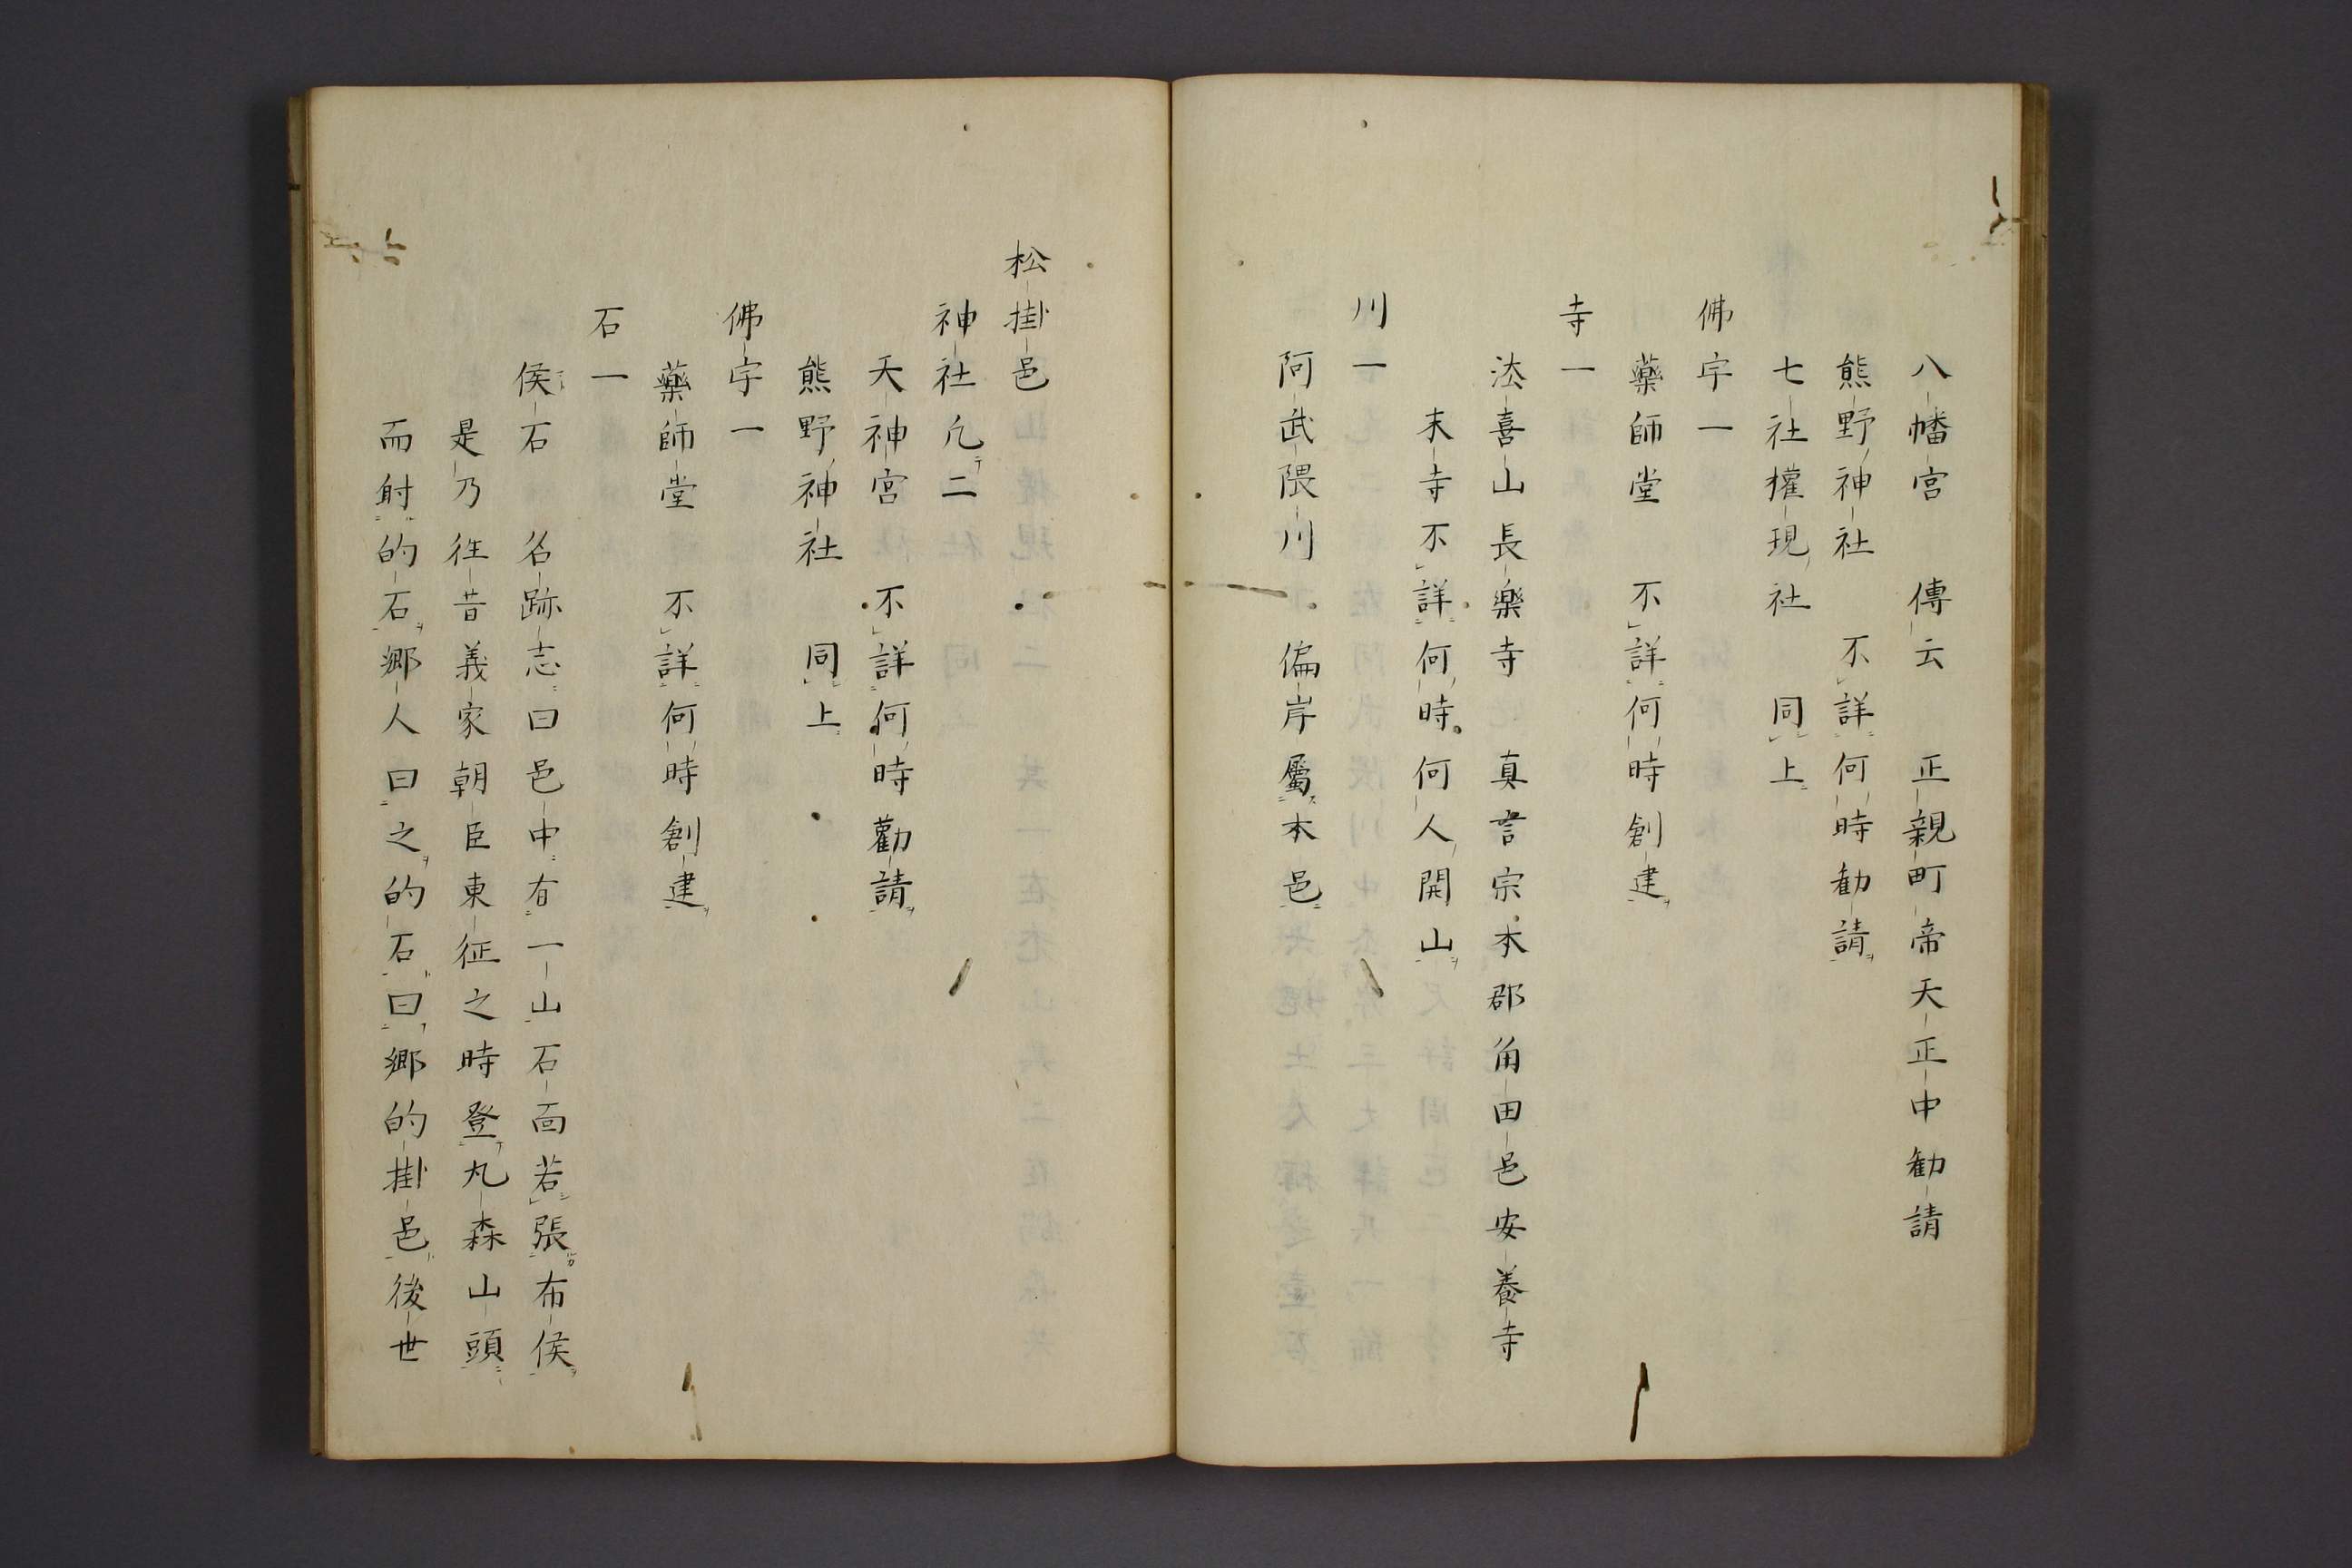 八幡宮　傳云　正親町帝天正中勧請
熊野神社　不詳何時勧請
七社權現社　同上
佛宇一
藥師堂　不詳何時創建
寺一
法喜山長樂寺　真言宗本郡角田邑安養寺
末寺不詳何時何人開山
川一
阿武隈川　偏岸屬本邑
松掛邑
神社凡二
天神宮　不詳何時勸請
熊野神社　同上
佛宇一
藥師堂　不詳何時創建
石一
侯石　名跡志曰邑中有一山石面若張布侯
是乃往昔義家朝臣東征之時登丸森山頭
而射的石郷人曰之的石曰郷的掛邑後世